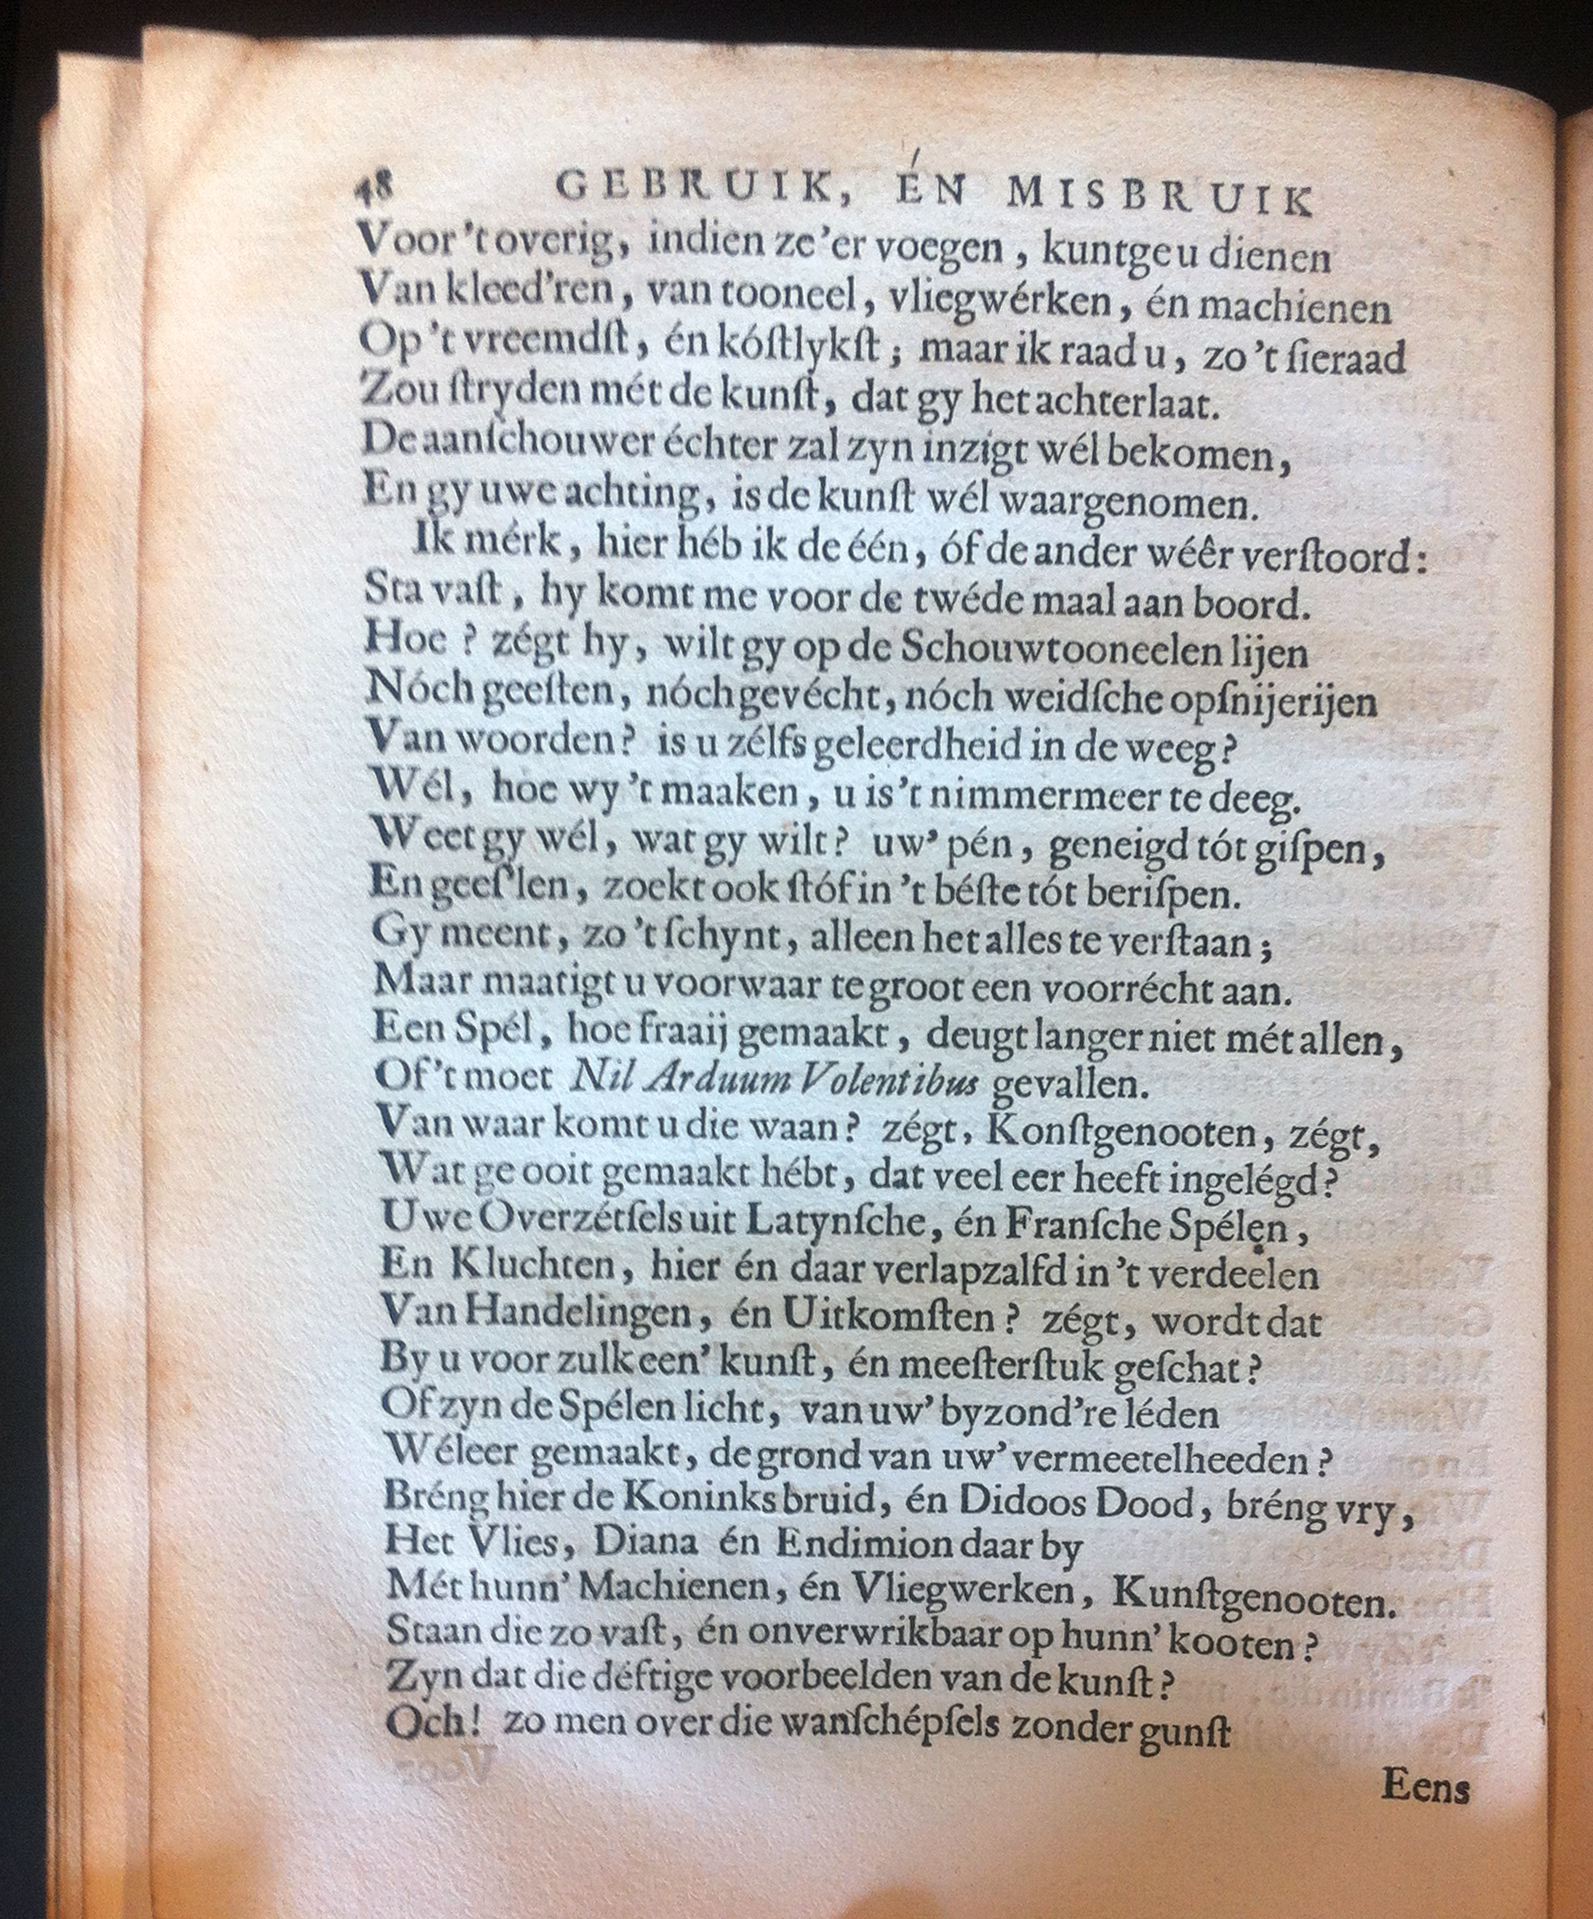 48 GEBRUIK, ÉN MISBRUIK
Voor 't overig, indien ze 'er voegen, kuntge u dienen
Van kleed'ren, van tooneel, vliegwérken, én machienen
Op 't vreemdſt, én kóſtlykſt; maar ik raad u, zo 't ſieraad
Zou ſtryden mét de kunſt, dat gy het achterlaat.
De aanſchouwer échter zal zyn inzigt wél bekomen,
En gy uwe achting, is de kunſt wél waargenomen.
Ik mérk, hier héb ik de één, óf de ander wéêr verſtoord:
Sta vaſt, hy komt me voor de twéde maal aan boord.
Hoe? zégt hy, wilt gy op de Schouwtooneelen lijen
Nóch geeſten, nóch gevécht, nóch weidſche opſnijerijen
Van woorden? is u zélfs geleerdheid in de weeg?
Wél, hoe wy 't maaken, u is 't nimmermeer te deeg.
Weet gy wél, wat gy wilt? uw' pén, geneigd tót giſpen,
En geeſ'len, zoekt ook ſtóf in 't béſte tót beriſpen.
Gy meent, zo 't ſchynt, alleen het alles te verſtaan;
Maar maatigt u voorwaar te groot een voorrécht aan.
Een Spél, hoe fraaij gemaakt, deugt langer niet mét allen,
Of 't moet Nil Arduum Volentibus gevallen.
Van waar komt u die waan? zégt, Konſtgenooten, zégt,
Wat ge ooit gemaakt hébt, dat veel eer heeft ingelégd?
Uwe Overzétſels uit Latynſche, én Franſche Spélen,
En Kluchten, hier én daar verlapzalfd in 't verdeelen
Van Handelingen, én Uitkomſten? zégt, wordt dat
By u voor zulk een' kunſt, én meeſterſtuk geſchat?
Of zyn de Spélen licht, van uw' byzond're léden
Wéleer gemaakt, de grond van uw' vermeetelheeden?
Bréng hier de Koninksbruid, én Didoos Dood, bréng vry,
Het Vlies, Diana én Endimion daar by
Mét hunn' Machienen, én Vliegwerken, Kunſtgenooten.
Staan die zo vaſt, én onverwrikbaar op hunn' kooten?
Zyn dat die déftige voorbeelden van de kunſt?
Och! zo men over die wanſchépſels zonder gunſt
Eens